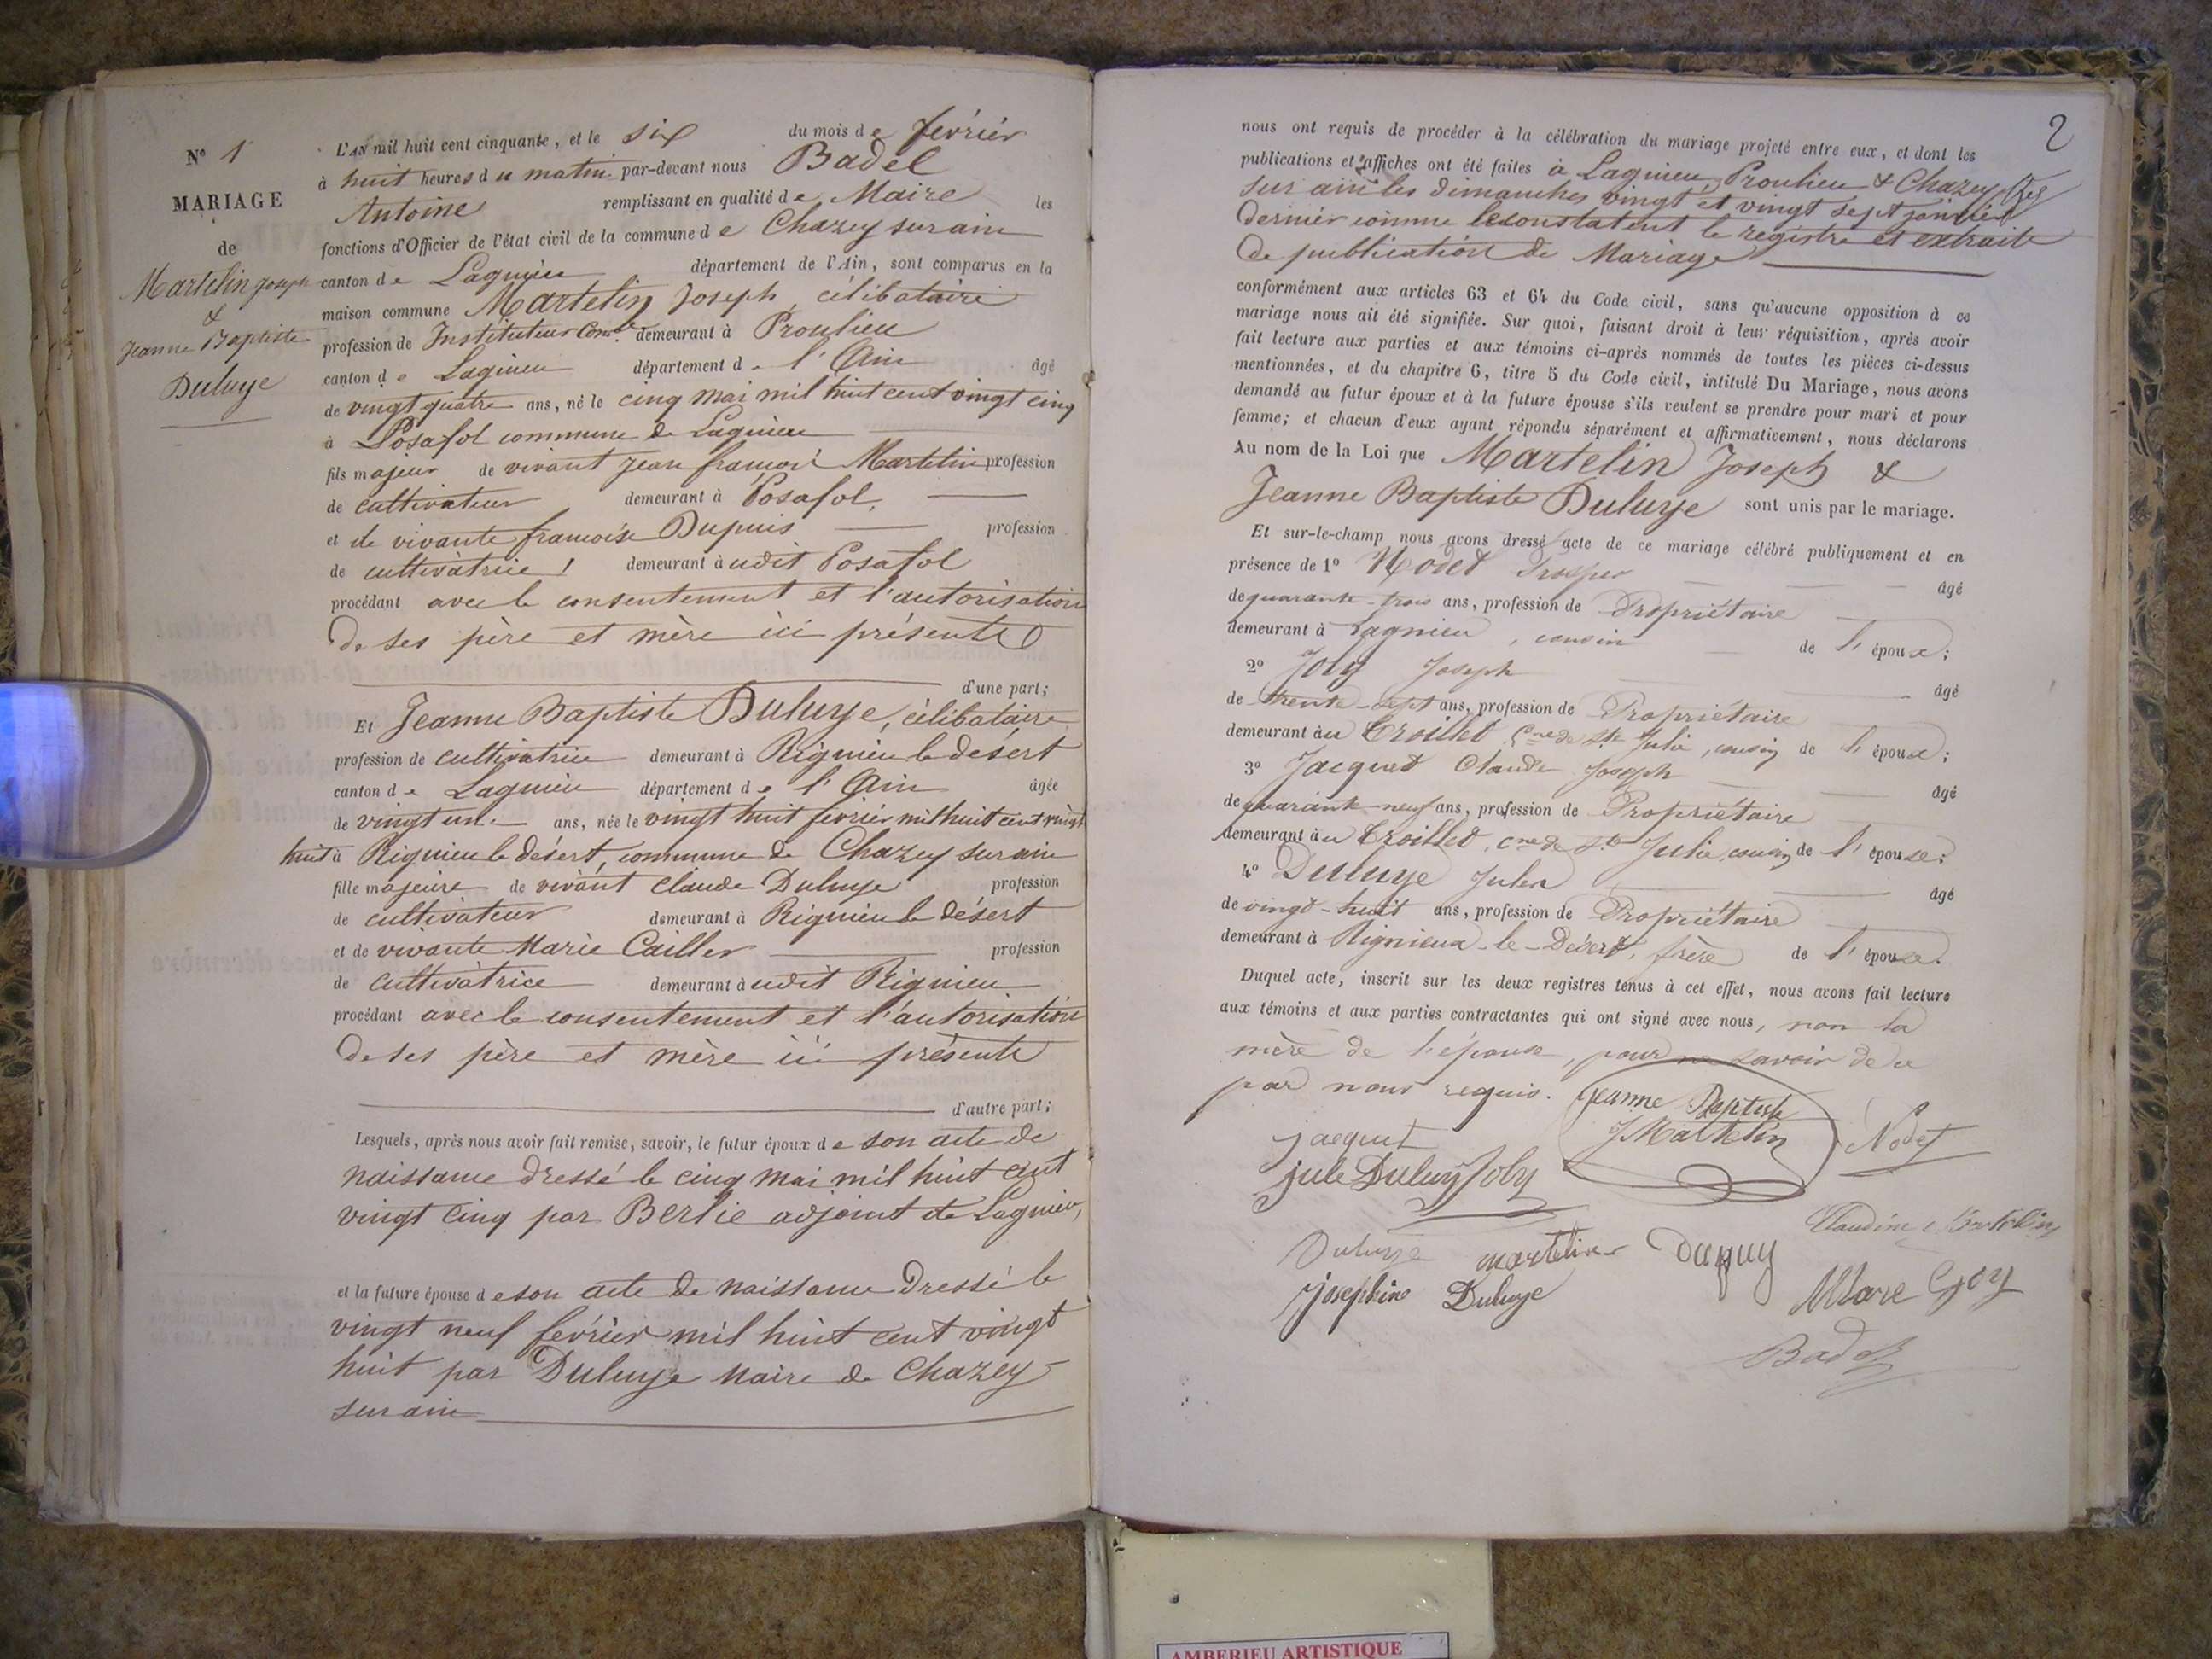 N° 1
MARIAGE
de
Martelin Joseph
&
Jeanne Baptiste
Duluye
L'AN mil huit cent cinquante, et le six du mois de février
à huit heures du matin par-devant nous Badel
Antoine remplissant en qualité de Maire les
fonctions d'Officier de l'état civil de la commune de Chazey sur ain
canton de Lagnieu département de l'Ain, sont comparus en la
maison commune Martelin Joseph, célibataire
profession de Instituteur Comal demeurant à Proulieu
canton de Lagnieu département de l'Ain âgé
de vingt quatre ans, né le cinq mai mil huit cent vingt cinq
à Posafol commune de Lagnieu
fils majeur de vivant Jean françois Martelin profession
de cultivateur demeurant à Posafol,
et de vivante francoise Dupuis profession
de cultivatrice demeurant audit Posafol
procédant avec le consentement et l'autorisation
de ses père et mère ici présents
d'une part;
Et Jeanne Baptiste Duluye, célibataire
profession de cultivatrice demeurant à Rignieu le désert
canton de Lagnieu département de l'Ain âgée
de vingt un ans, née le vingt huit février mil huit cent vingt
huit à Rignieu le désert, commune de Chazey sur ain
fille majeure de vivant Claude Duluye profession
de cultivateur demeurant à Rignieu le désert
et de vivante Marie Cailler profession
de cultivatrice demeurant audit Rignieu
procédant avec le consentement et l'autorisation
de ses père et mère ici présents
d'autre part;
Lesquels, après nous avoir fait remise, savoir, le futur époux de son acte de
naissance dressé le cinq mai mil huit cent
vingt cinq par Berlie adjoint de Lagnieu,
et la future épouse de son acte de naissance dressé le
vingt neuf février mil huit cent vingt
huit par Duluye maire de Chazey
sur ain
2
nous ont requis de procéder à la célébration du mariage projeté entre eux, et dont les
publications et affiches ont été faites à Lagnieu, Proulieu & Chazey
sur ain les dimanches vingt et vingt sept janvier
dernier comme le constatent le registre et extraits
de publication de Mariage
conformément aux articles 63 et 64 du Code civil, sans qu'aucune opposition à ce
mariage nous ait été signifiée. Sur quoi, faisant droit à leur réquisition, après avoir
fait lecture aux parties et aux témoins ci-après nommés de toutes les pièces ci-dessus
mentionnées, et du chapitre 6, titre 5 du Code civil, intitulé Du Mariage, nous avons
demandé au futur époux et à la future épouse s'ils veulent se prendre pour mari et pour
femme; et chacun d'eux ayant répondu séparément et affirmativement, nous déclarons
Au nom de la Loi que Martelin Joseph &
Jeanne Baptiste Duluye sont unis par le mariage.
Et sur-le-champ nous avons dressé acte de ce mariage célébré publiquement et en
présence de 1° Nodet Prosper âgé
de quarante-trois ans, profession de Propriétaire
demeurant à Lagnieu, cousin de l'époux;
2° Joly Joseph âgé
de trente-sept ans, profession de Propriétaire
demeurant au Troillet Cne de Ste Julie, cousin de l'époux;
3° Jacquet Claude Joseph âgé
de quarante-neuf ans, profession de Propriétaire
demeurant au Troillet, cne de Ste Julie, cousin de l'épouse;
4° Duluye Jules âgé
de vingt-huit ans, profession de Propriétaire
demeurant à Rignieux-le-Désert, frère de l'épouse.
Duquel acte, inscrit sur les deux registres tenus à cet effet, nous avons fait lecture
aux témoins et aux parties contractantes qui ont signé avec nous, non la
mère de l'épouse, pour ne savoir de ce
par nous requis. Jeanne Baptiste
jacquet J Martelin Nodet
jule Duluy Joly
Claudine Martelin
Duluye martelin Dupuy
Josephine Duluye Marc Goy
Badel
AMBERIEU ARTISTIQUE